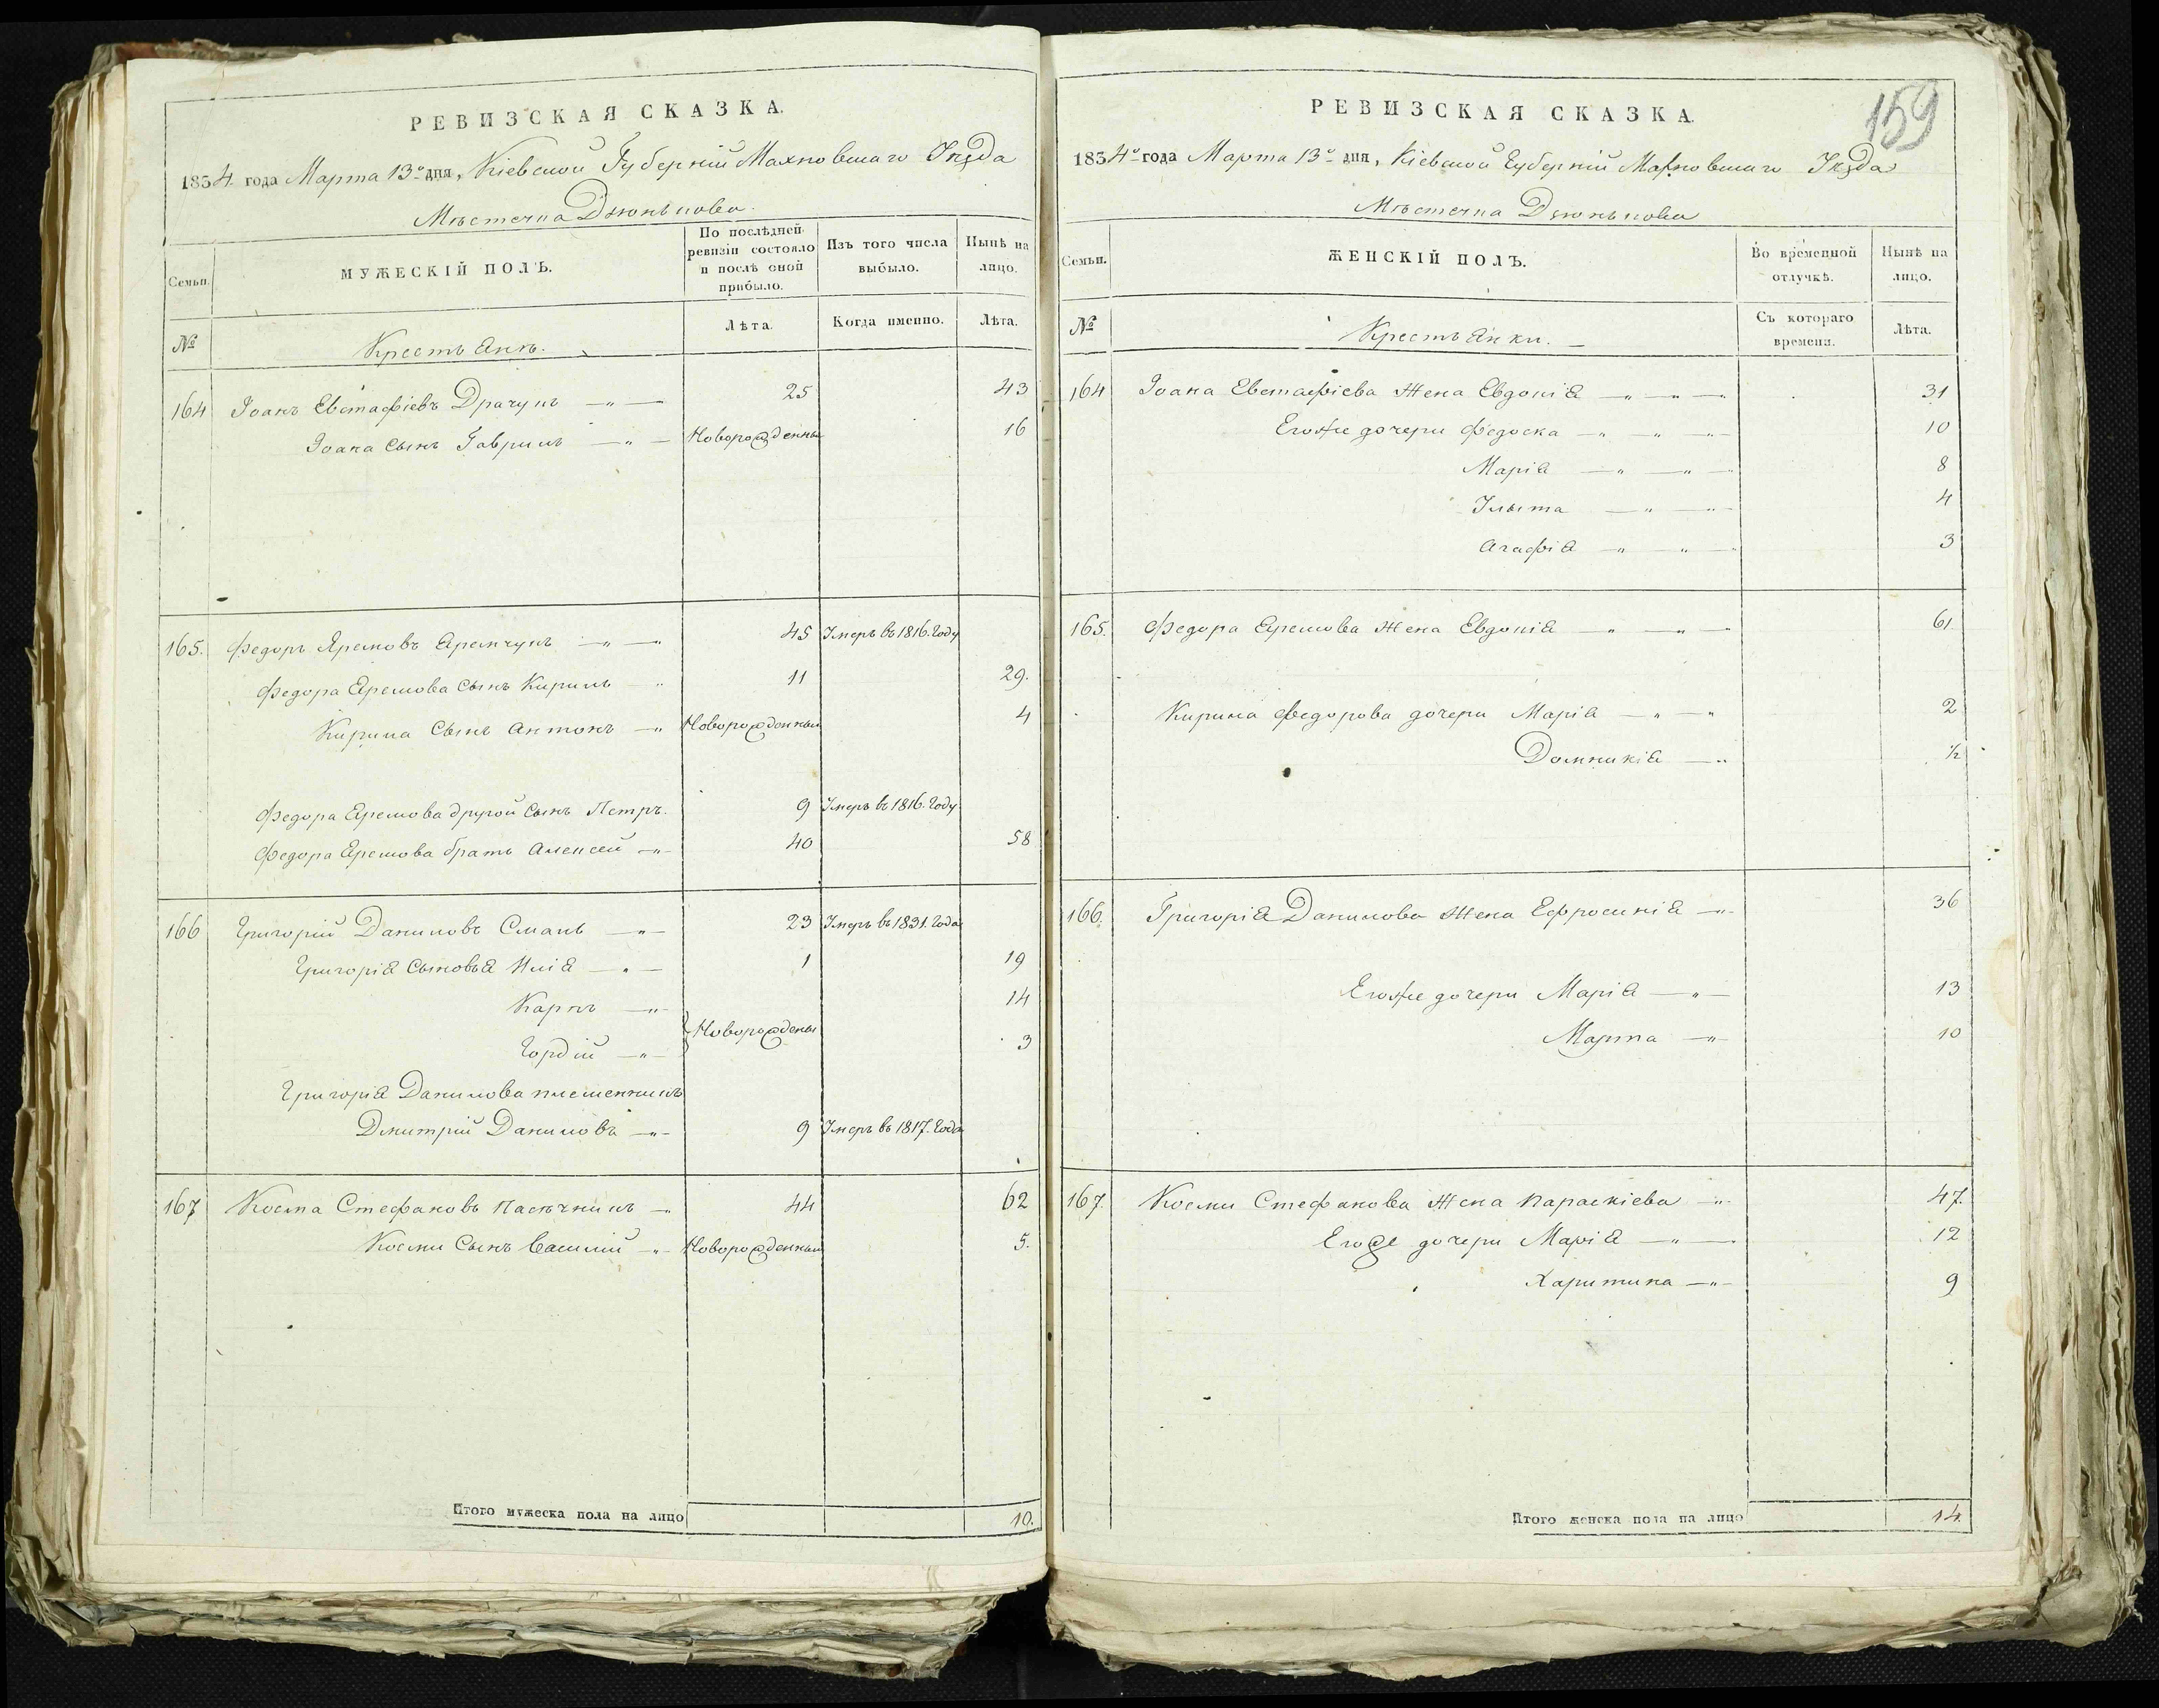 РЕВИЗСКАЯ СКАЗКА.
1834. года Марта 13º дня, Кіевской Губерніи Махновскаго Уѣзда
Мѣстечка Дзюнькова.
Семьи.
МУЖЕСКІЙ ПОЛЪ.
По послѣдней ревизіи состояло и послѣ оной прибыло.
Изъ того числа выбыло.
Нынѣ на лицо.
№
Крестьянъ.
Лѣта.
Когда именно.
Лѣта.
164 Іоанъ Евстафіевъ Драчукъ —„— 25 43
Іоана сынъ Гаврилъ —„— Новорожденны 16
165. Федоръ Яремовъ Яремчукъ —„— 45 Умеръ въ 1816. Году
Федора Яремова сынъ Кирилъ —„ 11 29.
Кирила Сынъ Антонъ —„ Новорожденный 4
Федора Яремова другой сынъ Петръ. 9 Умеръ въ 1816. Году
Федора Яремова братъ Алексей —„— 40 58
166 Григорій Даниловъ Смакъ —„— 23 Умеръ въ 1831. Года
Григорія Сыновья Илія —„— 1 19
Карпъ —„— 14
Новорождены
Гордій —„— 3
Григорія Данилова племенникъ
Дмитрій Даниловъ —„— 9 Умеръ въ 1817. Года
167 Косма Стефановъ Пасѣчникъ —„ 44 62
Космы Сынъ Василій —„— Новорожденный 5.
Итого мужеска пола на лицо 10.
159
РЕВИЗСКАЯ СКАЗКА.
1834º года Марта 13º дня, Кіевской Губерніи Махновскаго Уѣзда
Мѣстечка Дзюнькова
Семьи.
ЖЕНСКІЙ ПОЛЪ.
Во временной отлучкѣ.
Нынѣ на лицо.
№
Крестьянки. —
Съ котораго времени.
Лѣта.
164 Іоана Евстафіева Жена Евдокія —„—„— 31
Егоже дочери Федоска —„—„— 10
Марія —„—„— 8
Улыта —„—„— 4
Агафія —„—„— 3
165. Федора Яремова Жена Евдокія —„—„— 61.
Кирила Федорова дочери Марія —„—„ 2
Домникія —„ ½
166. Григорія Данилова Жена Ефросинія —„— 36
Егоже дочери Марія —„— 13
Марта —„— 10
167. Космы Стефанова Жена Параскіева —„— 47.
Егоже дочери Марія —„— 12
Харитина —„— 9
Итого женска пола на лицо 14.